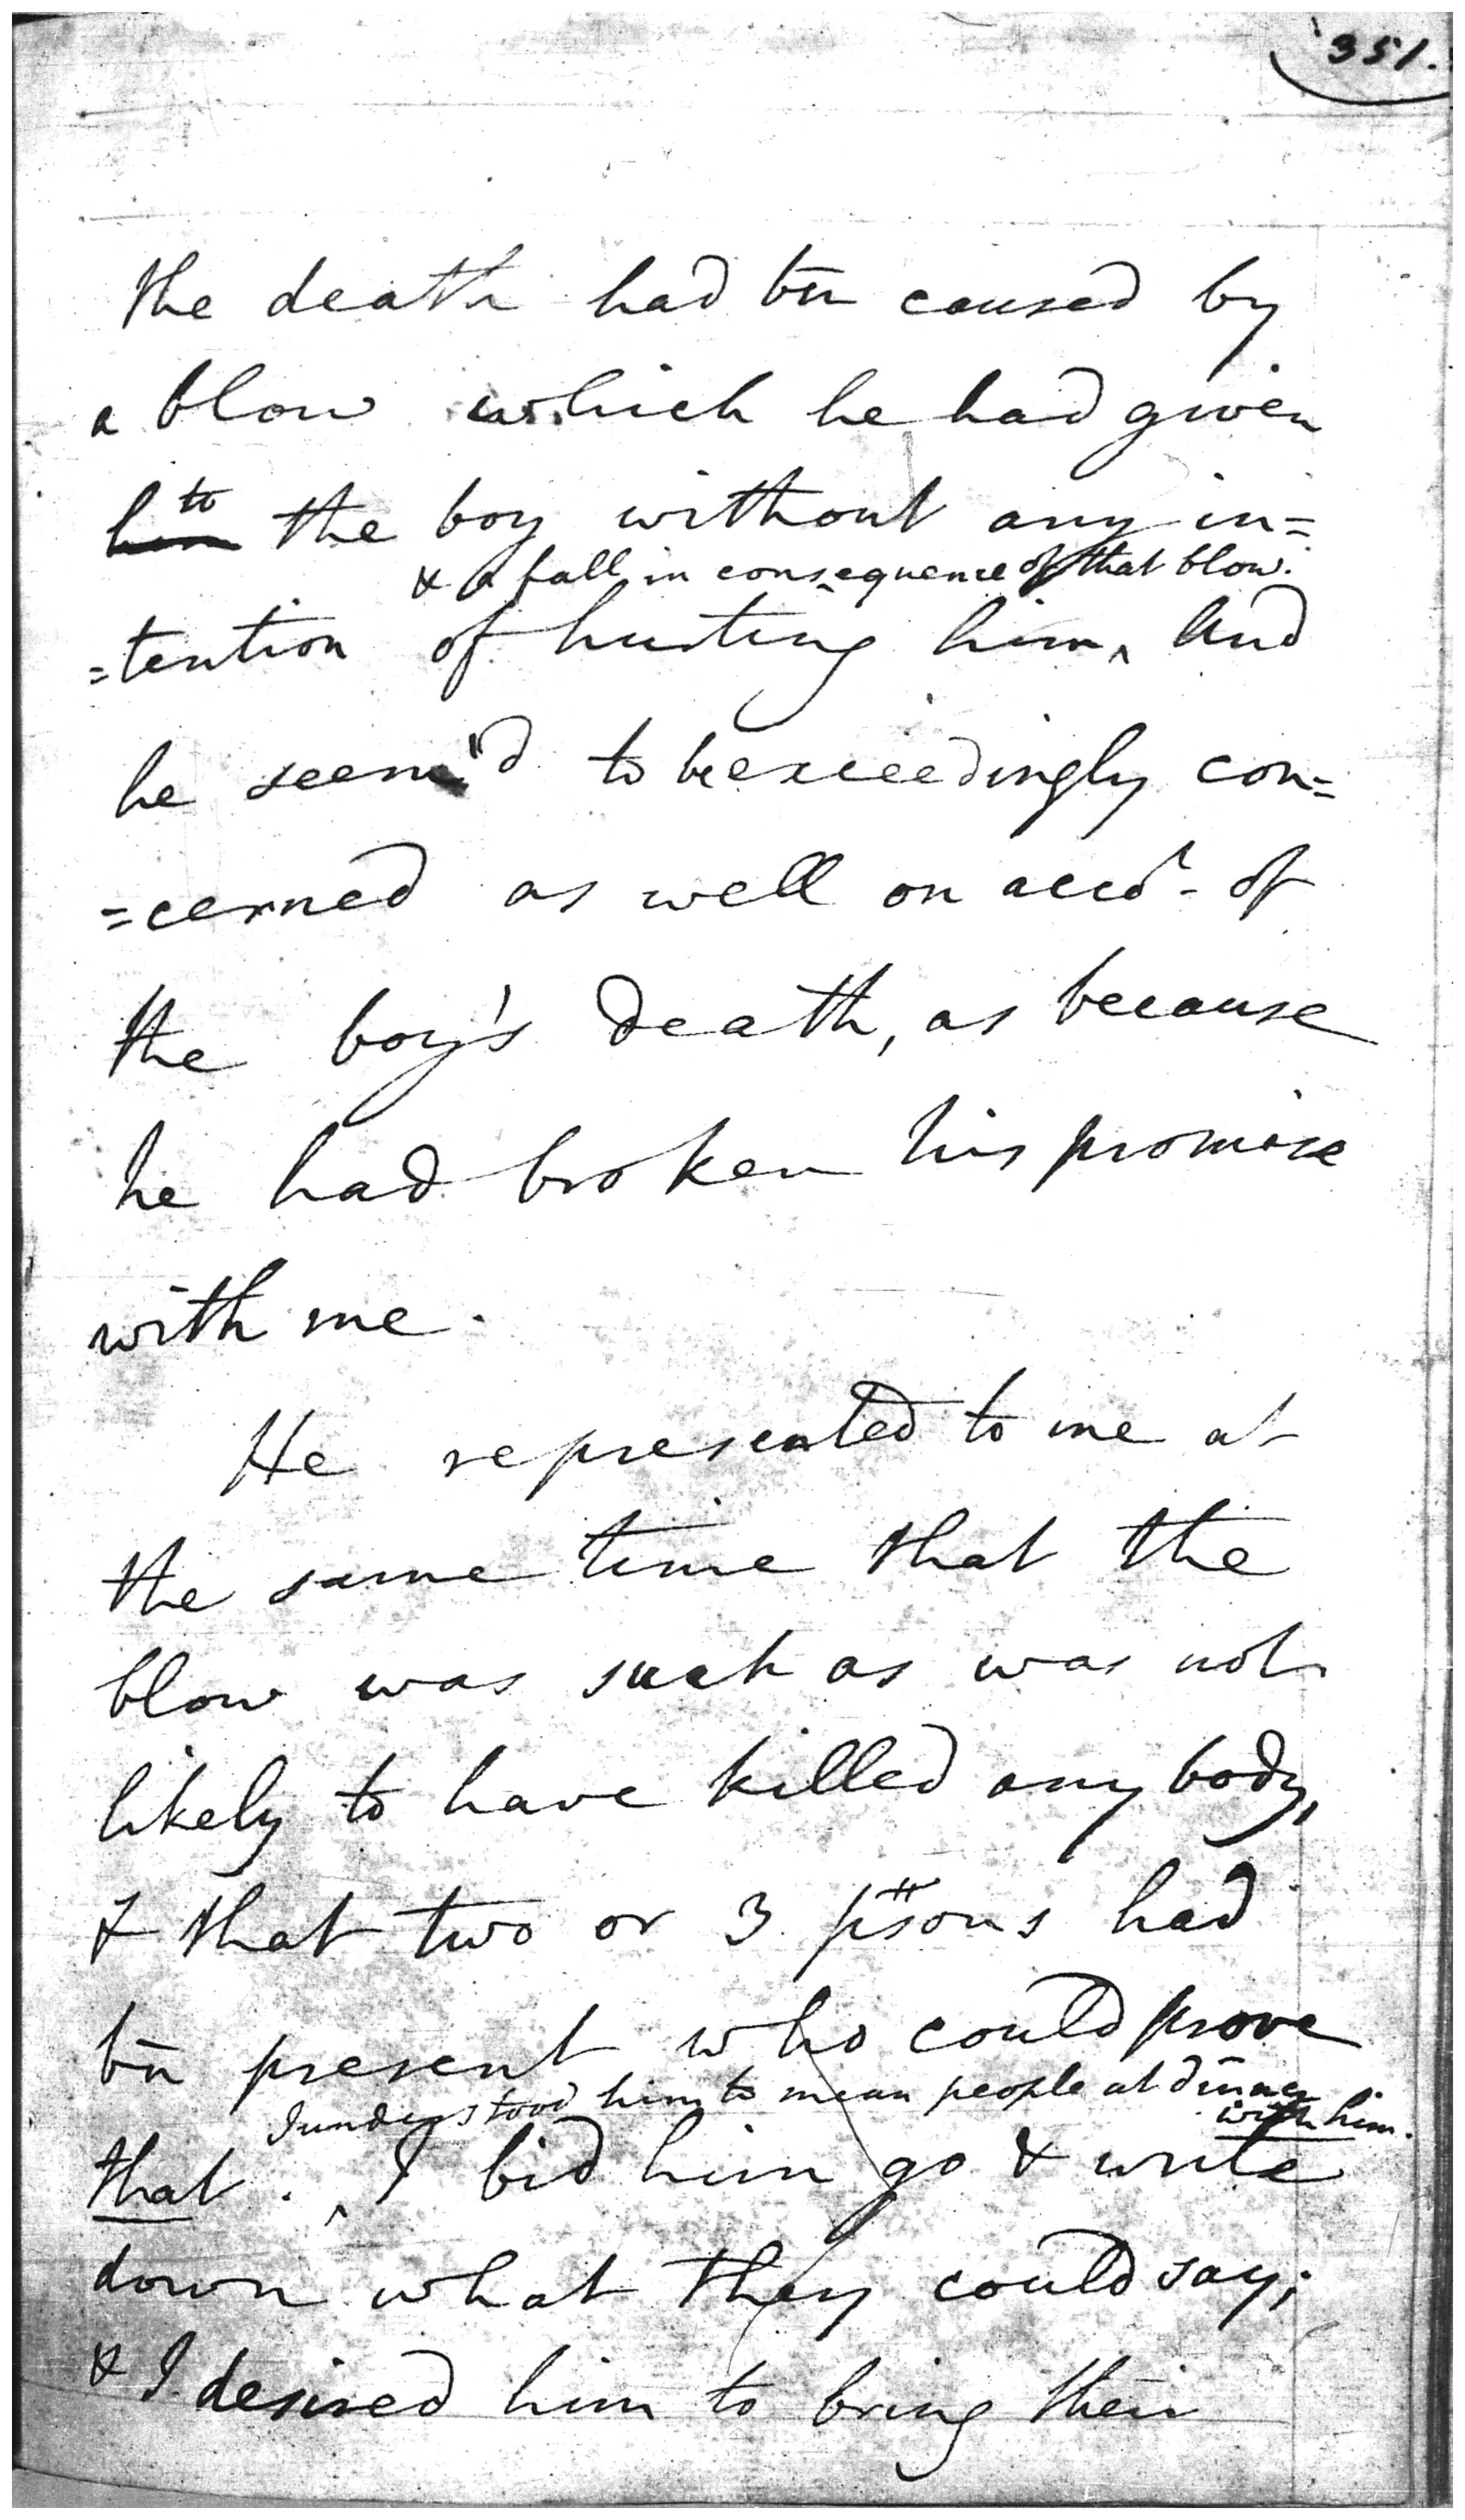 351.
the death had bn̄ caused by
a blow which he had given
~~him~~ to the boy without any in=
& a fall in consequence of that blow.
=tention of hurting him ‸ And
he seem'd to be exceedingly con=
=cerned as well on acco.t of
the boy's death, as because
he had broken his promise
with me.
He represented to me at
the same time that the
blow was such as was not
likely to have killed any body,
& that two or 3 p̄sons had
bn̄ present who could prove
I understood him to mean people at dinner
with him.
that. ‸ I bid him go & write
down what they could say;
& I desired him to bring their